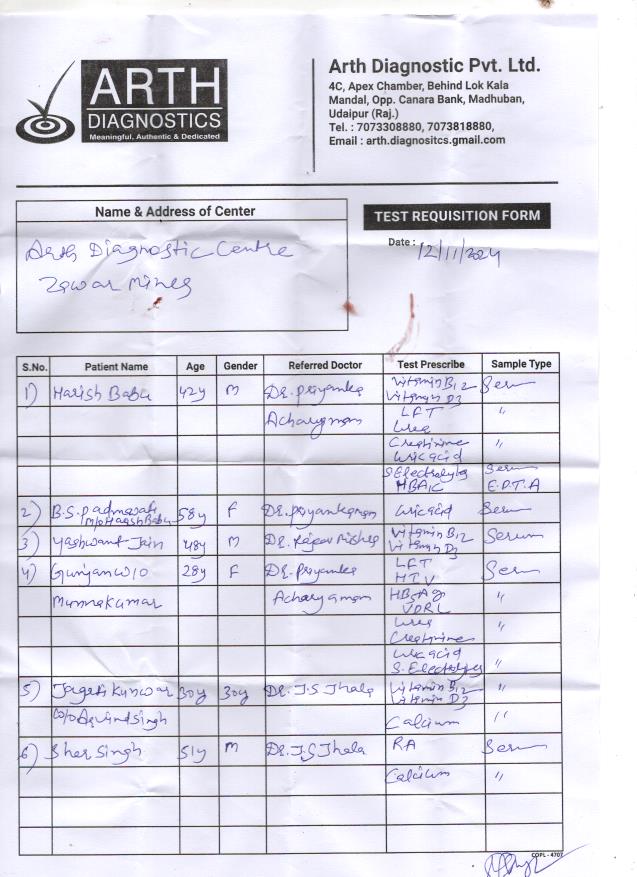 ARTH
DIAGNOSTICS
Meaningful, Authentic & Dedicated
Arth Diagnostic Pvt. Ltd.
4C, Apex Chamber, Behind Lok Kala
Mandal, Opp. Canara Bank, Madhuban,
Udaipur (Raj.)
Tel. : 7073308880, 7073818880,
Email : arth.diagnositcs.gmail.com
Name & Address of Center
TEST REQUISITION FORM
Arth Diagnostic Centre
Zawar Mines
Date : 12/11/2024
S.No. Patient Name Age Gender Referred Doctor Test Prescribe Sample Type
1) Harish Babu 42y M Dr. Priyanka Vitamin B12 Serum
Vitamin D3
Acharya mam LFT "
Urea
Creatinine "
Uric acid
S. Electrolytes Serum
HBA1C E.D.T.A
2) B.S. Padmavati 58y F Dr. Priyanka mam Uric acid Serum
M/o Harish Babu
3) Yashwant Jain 48y M Dr. Vitamin B12 Serum
Vitamin D3
4) Gunjan W/O 28y F Dr. Priyanka LFT Serum
HIV
Munna Kumar Acharya mam HBsAg "
VDRL
Urea "
Creatinine
Uric acid
S. Electrolytes "
5) Jagrati Kunwar 30y 30y Dr. J.S Jhala Vitamin B12 "
Vitamin D3
Arvind Singh Calcium "
6) Sher Singh 51y M Dr. J.S Jhala RA Serum
Calcium "
COPL - 4707